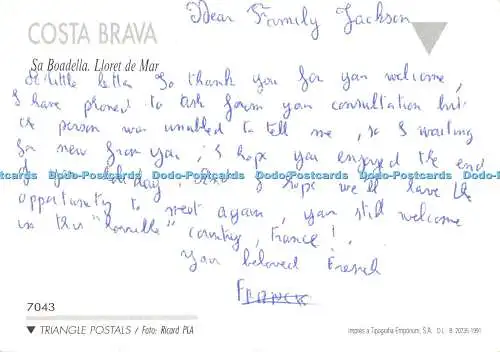 Dear Family Jackson
COSTA BRAVA
Sa Boadella. Lloret de Mar
A little letter to thank you for your welcome,
I have phoned to ask for your consultation but
the person was unabled to tell me, so I waiting
for new from you; I hope you enjoyed the end
of your holiday. I hope we'll have the
Dodo-Postcards Dodo-Postcards Dodo-Postcards Dodo-Postcards Dodo-Postcards
opportunity to meet again, you still welcome
in this "horrible" country, France!
Your beloved French
Franck
7043
▼ TRIANGLE POSTALS / Foto: Ricard PLA
Imprès a Tipografia Empòrium, S.A. D.L. B. 20735-1991